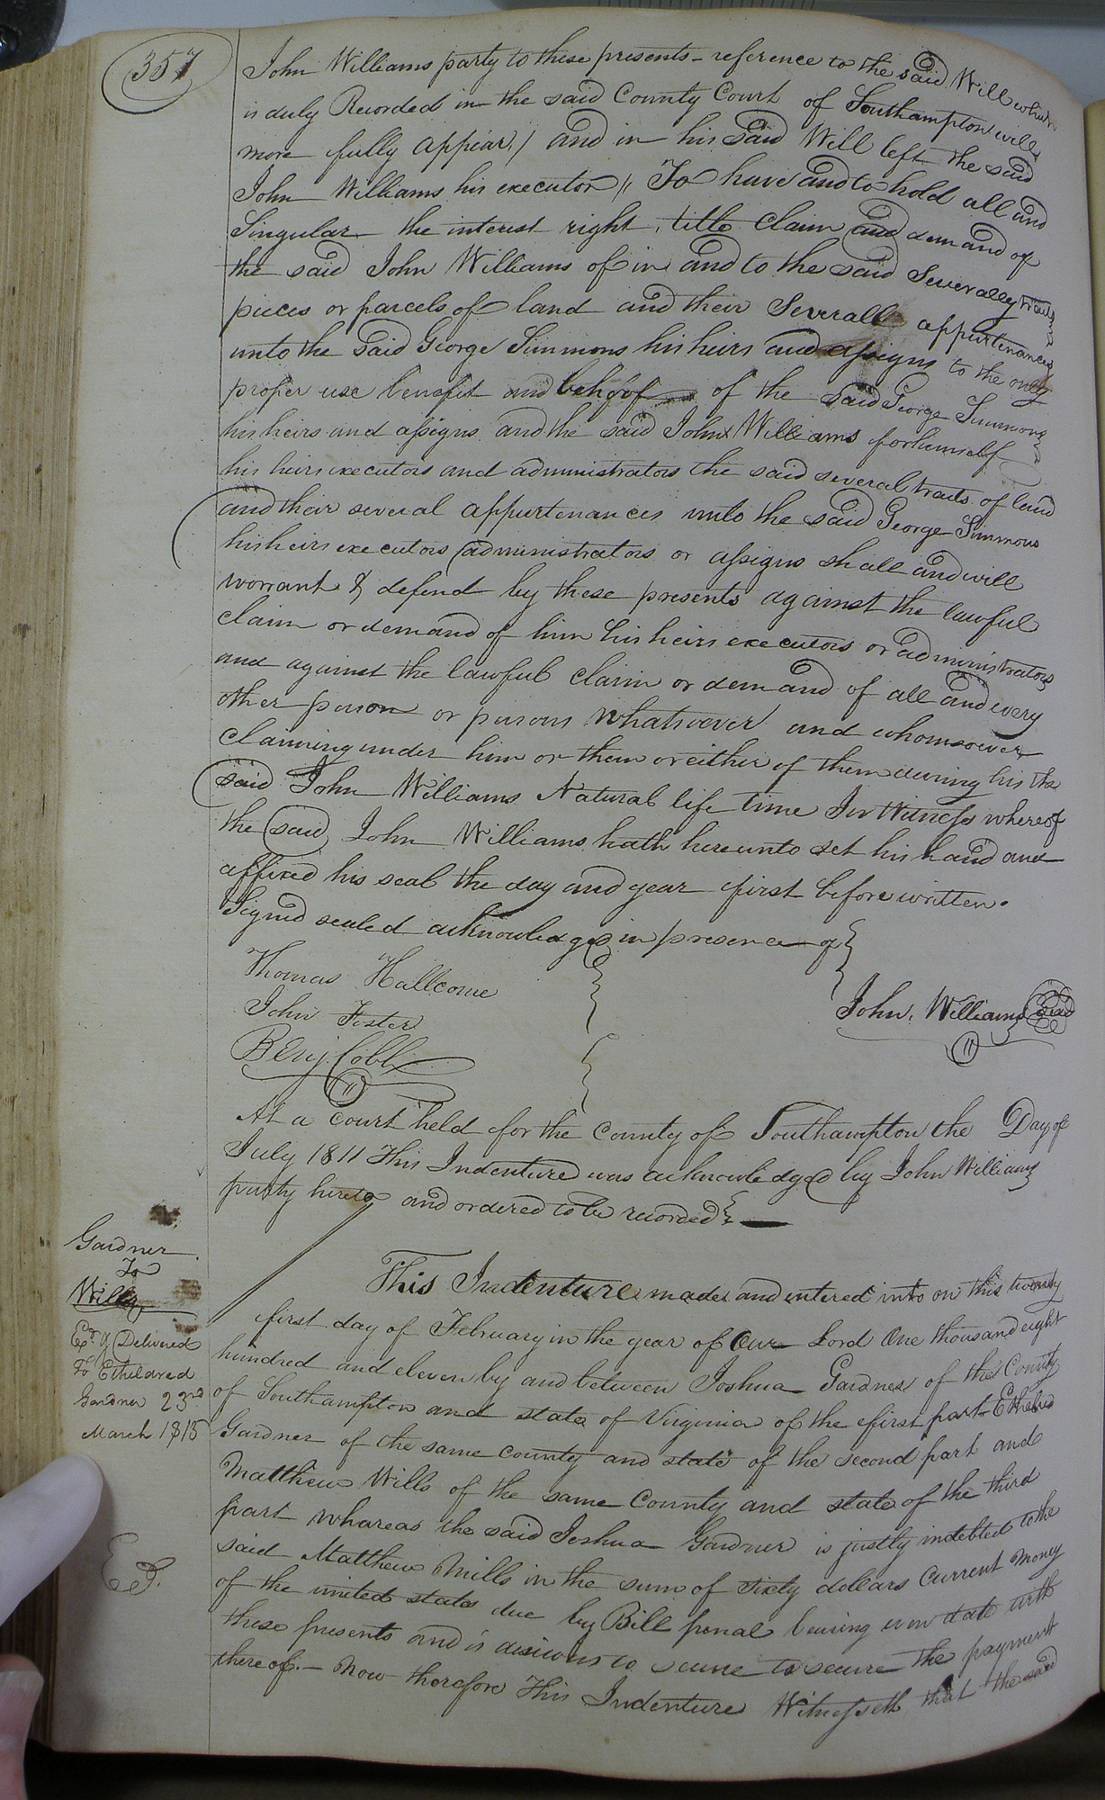 357
John Williams party to these presents - reference to the said Will which
is duly Recorded in the said County Court of Southampton will
more fully appear,) and in his said Will left the said
John Williams his executor // To have and to hold all and
Singular the interest right, title claim and demand of
the said John Williams of in and to the said Severally tracts
pieces or parcels of land and their Severall appurtenances
unto the said George Simmons his heirs and assigns to the only
proper use benefit and behoof of the said George Simmons
his heirs and assigns and the said John Williams for himself
his heirs executors and administrators the said several tracts of land
and their several appurtenances unto the said George Simmons
his heirs executors administrators or assigns shall and will
worrant & defend by these presents against the lawful
claim or demand of him his heirs executors or administrators
and against the lawful claim or demand of all and every
other person or persons whatsoever and whomsoever
claiming under him or them or either of them during his the
said John Williams Natural life time In Witness whereof
the said John Williams hath hereunto set his hand and
affixed his seal the day and year first before written.
Signed sealed acknowledged in presence of
Thomas Hallcome
John Foster
Benj. Cobb
John, Williams Seal
At a Court held for the County of Southampton the Day of
July 1811 This Indenture was acknowledged by John Williams
party hereto and ordered to be recorded
Gardner
To
Wills
Ex.d & Delivered
to Etheldred
Gardner 23rd
March 1815
This Indenture made and entered into on this twenty
first day of February in the year of Our Lord One thousand eight
hundred and eleven by and between Joshua Gardner of the County
of Southampton and state of Virginia of the first part Etheldred
Gardner of the same county and state of the second part and
Matthew Wills of the same County and state of the third
part whareas the said Joshua Gardner is justly indebted to the
said Matthew Mills in the sum of sixty dollars Current money
of the united states due by Bill penal bearing even date with
these presents and is desirous to secure to secure the payment
thereof. - Now therefore This Indenture Witnesseth that the said